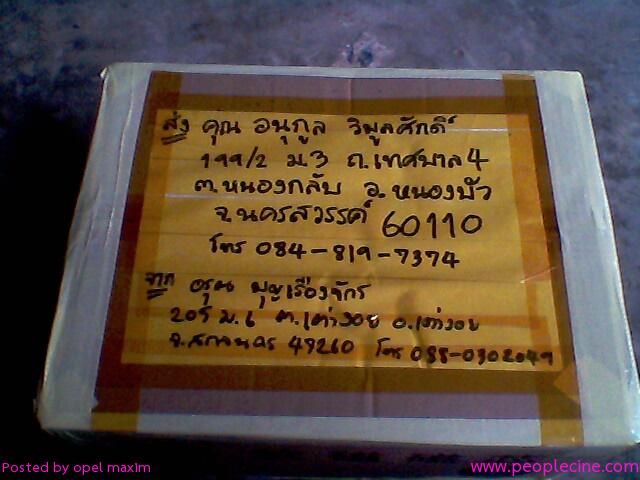 ส่ง คุณ อนุกูล วิมูลศักดิ์
199/2 ม.3 ถ.เทศบาล 4
ต.หนองกลับ อ.หนองบัว
จ.นครสวรรค์ 60110
โทร 084-819-7374
จาก อรุณ บุญเรืองจักร
205 ม.6 ต.เต่างอย อ.เต่างอย
จ.สกลนคร 47260 โทร 085-0302049
Posted by opel maxim
www.peoplecine.com